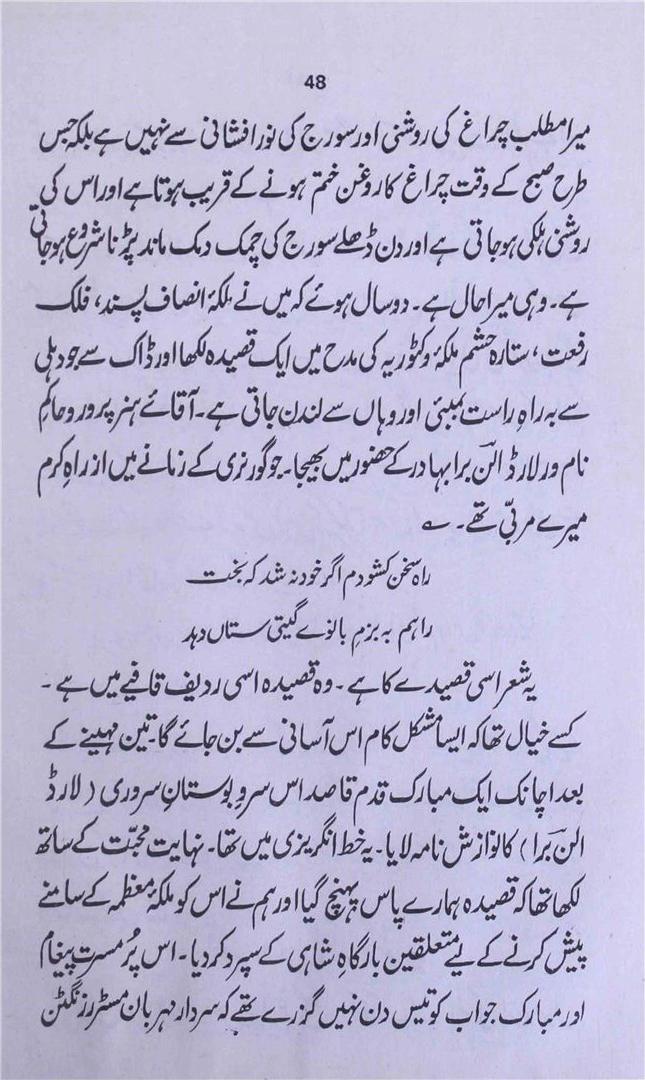 48
میرا مطلب چراغ کی روشنی اور سورج کی نور افشانی سے نہیں ہے بلکہ جس
طرح صبح کے وقت چراغ کا روغن ختم ہونے کے قریب ہوتا ہے اور اس کی
روشنی ہلکی ہو جاتی ہے اور دن ڈھلے سورج کی چمک دمک ماند پڑنا شروع ہو جاتی
ہے۔ وہی میرا حال ہے۔ دو سال ہوئے کہ میں نے ملکۂ انصاف پسند، فلک
رفعت، ستارہ حشم ملکۂ وکٹوریہ کی مدح میں ایک قصیدہ لکھا اور ڈاک سے جو دہلی
سے بہ راہِ راست بمبئی اور وہاں سے لندن جاتی ہے۔ آقائے ہنر پرور و حاکمِ
نام ور لارڈ الن برا بہادر کے حضور میں بھیجا۔ جو گورنری کے زمانے میں از راہِ کرم
میرے مربّی تھے۔ ؎
راہ سخن کشودم اگر خود نہ شد کہ بخت
راہم بہ بزمِ بانوے گیتی ستاں دہد
یہ شعر اسی قصیدے کا ہے۔ وہ قصیدہ اسی ردیف قافیے میں ہے۔
کسے خیال تھا کہ ایسا مشکل کام اس آسانی سے بن جائے گا۔ تین مہینے کے
بعد اچانک ایک مبارک قدم قاصد اس سروِ بوستانِ سروری (لارڈ
الن برا) کا نوازش نامہ لایا۔ یہ خط انگریزی میں تھا۔ نہایت محبّت کے ساتھ
لکھا تھا کہ قصیدہ ہمارے پاس پہنچ گیا اور ہم نے اس کو ملکۂ معظمہ کے سامنے
پیش کرنے کے لیے متعلقین بارگاہِ شاہی کے سپرد کر دیا۔ اس پُر مسرت پیغام
اور مبارک جواب کو تیس دن نہیں گزرے تھے کہ سردار مہربان مسٹر رزنگٹن